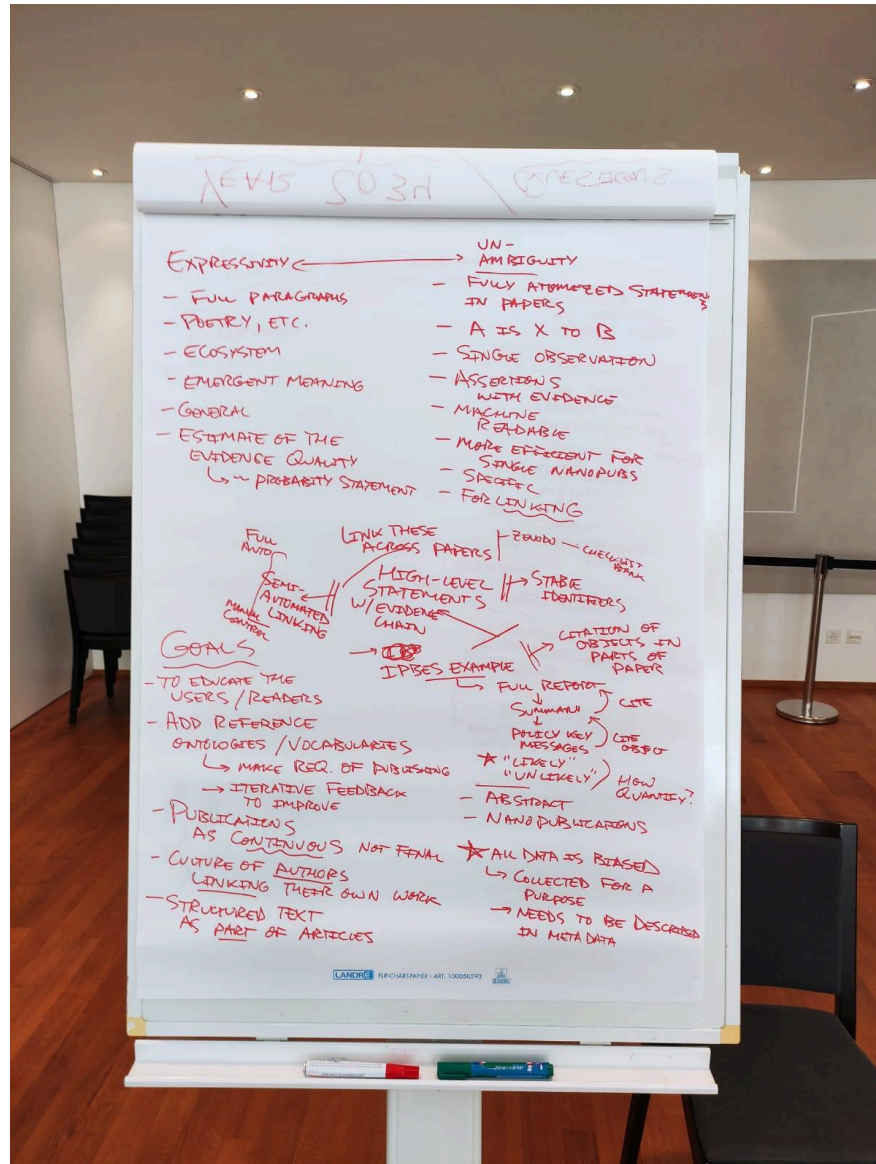 EXPRESSIVITY
- FULL PARAGRAPHS
- POETRY, ETC.
- ECOSYSTEM
- EMERGENT MEANING
- GENERAL
- ESTIMATE OF THE
EVIDENCE QUALITY
↳ ~ PROBABITY STATEMENT
UN-
AMBIGUITY
- FULLY ATOMIZED STATEMENTS
IN PAPERS
- A IS X TO B
- SINGLE OBSERVATION
- ASSERTIONS
WITH EVIDENCE
- MACHINE
READABLE
- MORE EFFICIENT FOR
SINGLE NANOPUBS
- SPECIFIC
- FOR LINKING
FULL
AUTO
SEMI-
AUTOMATED
LINKING
MANUAL
CONTROL
LINK THESE
ACROSS PAPERS
ZENODO — CHECKLIST
BANK
HIGH-LEVEL
STATEMENTS
W/ EVIDENCE
CHAIN
→ STABLE
IDENTIFIERS
CITATION OF
OBJECTS IN
PARTS OF
PAPER
→ IPBES EXAMPLE
↳ FULL REPORT
↓
SUMMARY
↓
POLICY KEY
MESSAGES
CITE
CITE
OBJECT
★ "LIKELY"
"UNLIKELY"
HOW
QUANTIFY?
- ABSTRACT
- NANOPUBLICATIONS
★ ALL DATA IS BIASED
↳ COLLECTED FOR A
PURPOSE
→ NEEDS TO BE DESCRIBED
IN METADATA
GOALS
- TO EDUCATE THE
USERS/READERS
- ADD REFERENCE
ONTOLOGIES/VOCABULARIES
↳ MAKE REQ. OF PUBLISHING
→ ITERATIVE FEEDBACK
TO IMPROVE
- PUBLICATIONS
AS CONTINUOUS NOT FINAL
- CULTURE OF AUTHORS
LINKING THEIR OWN WORK
- STRUCTURED TEXT
AS PART OF ARTICLES
LANDRÉ FLIP-CHART-PAPIER - ART. 100050593